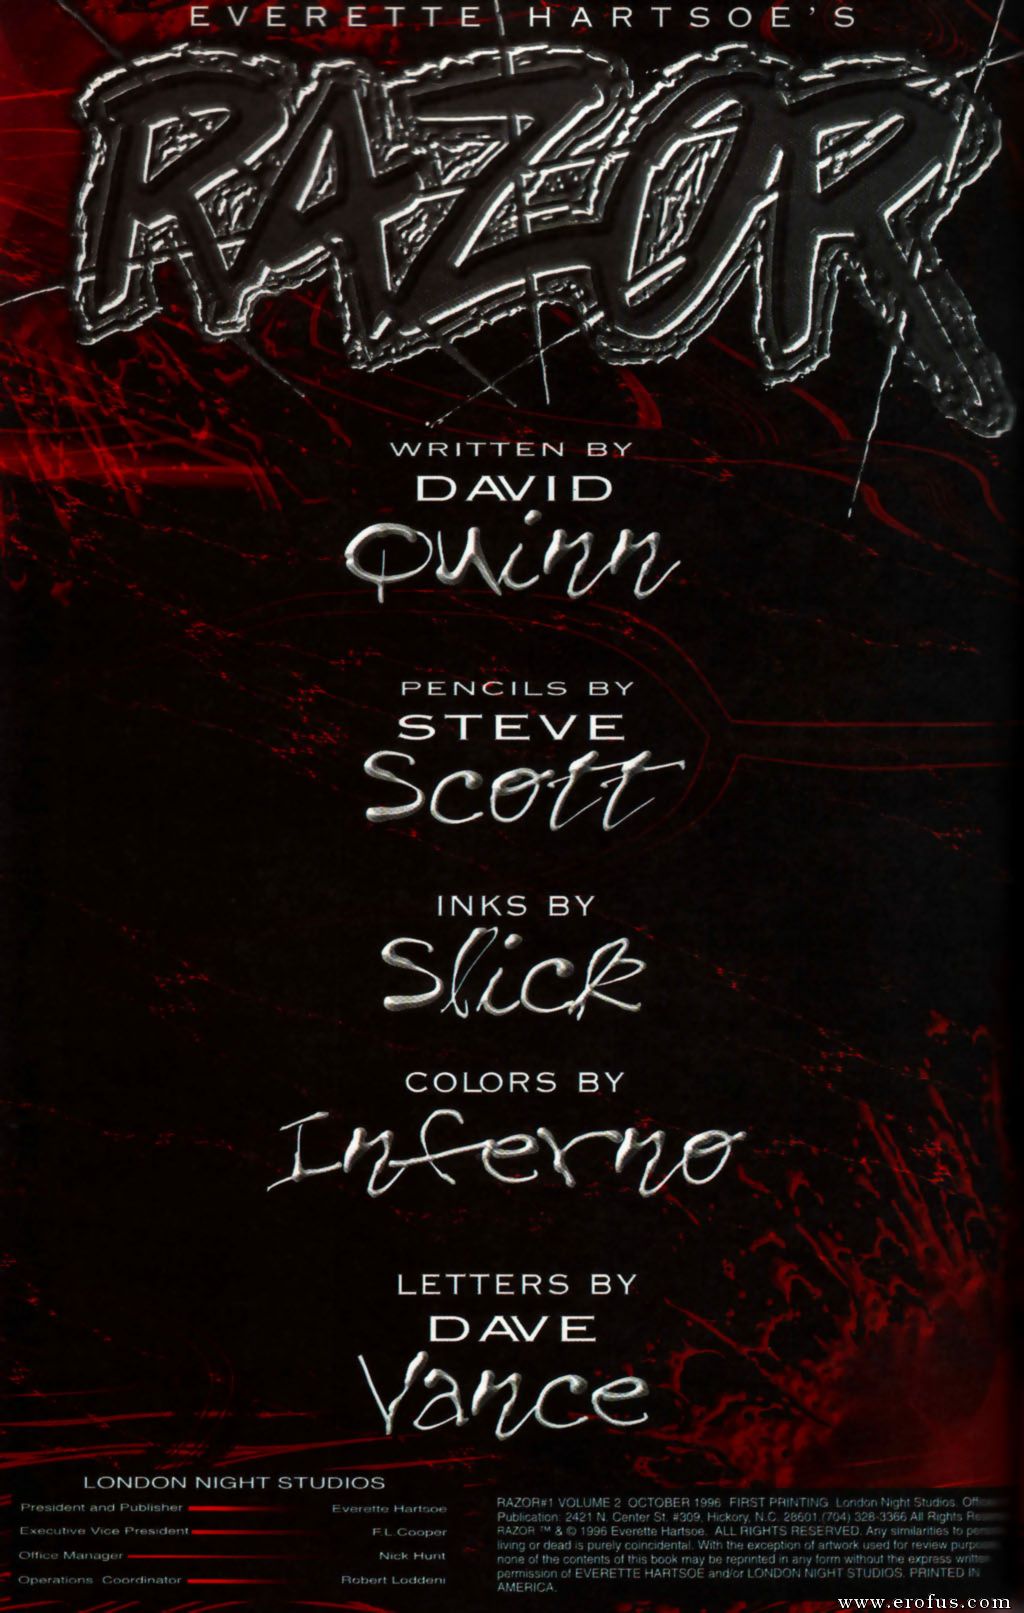 EVERETTE HARTSOE'S
RAZOR
WRITTEN BY
DAVID
Quinn
PENCILS BY
STEVE
Scott
INKS BY
Slick
COLORS BY
Inferno
LETTERS BY
DAVE
Vance
LONDON NIGHT STUDIOS
President and Publisher Everette Hartsoe
Executive Vice President F.L.Cooper
Office Manager Nick Hunt
Operations Coordinator Robert Loddeni
RAZOR#1 VOLUME 2 OCTOBER 1996 FIRST PRINTING London Night Studios.
Publication: 2421 N. Center St. #309, Hickory, N.C. 28601.(704) 328-3366 All Rights
RAZOR ™ & © 1996 Everette Hartsoe. ALL RIGHTS RESERVED. Any similarities to
living or dead is purely coincidental. With the exception of artwork used for review
none of the contents of this book may be reprinted in any form without the express written
permission of EVERETTE HARTSOE and/or LONDON NIGHT STUDIOS. PRINTED IN
AMERICA.
www.erofus.com